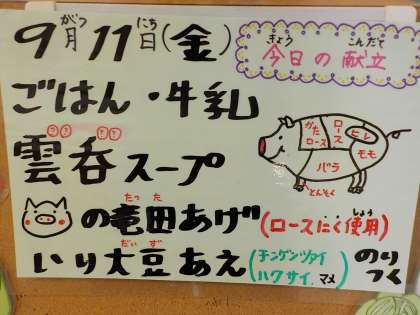 9月11日(金)
がつ にち
今日の献立
きょう こんだて
ごはん・牛乳
雲呑スープ
かたロース
ロース
ヒレ
モモ
バラ
とんそく
の竜田あげ(ロースにく使用)
たつた しよう
いり大豆あえ(チンゲンツァイ
ハクサイ、マメ)
だいず
のり
つく